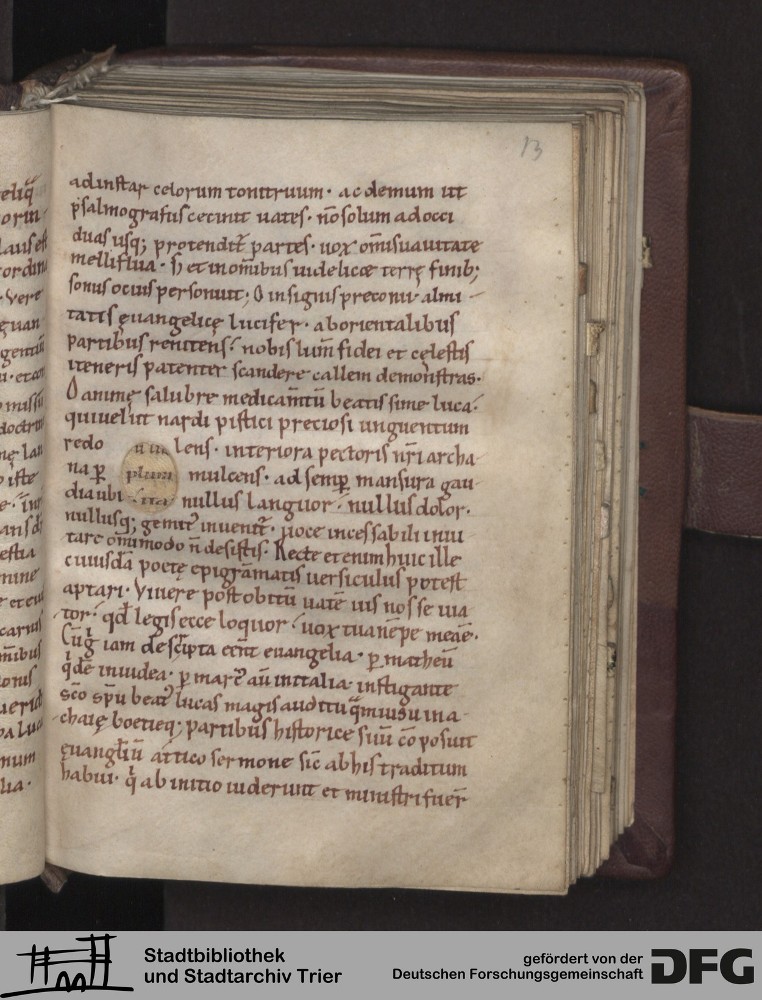 13
ad instar celorum tonitruum · ac demum ut
psalmografus cecinit uates · nō solum ad occi
duas usq; protendit̄ partes · uox om̄i suauitate
melliflua · s; et in om̄ibus uidelicet terrę finib;
sonus ocius personuit; O insignis preconii almi
tatis ęuangelicę lucifer · ab orientalibus
partibus renitens · nobis lum̄ fidei et cęlestis
iteneris patenter scandere callem demonstras ·
O animę salubre medicam̄tū beatissime luca ·
qui uelut nardi pistici preciosi unguentum
redo lens · interiora pectoris nr̄i archa
na ꝑ mulcens · ad semꝑ mansura gau
dia ubi nullus languor · nullus dolor ·
nullusq; gemit᷒ inuenit̄ · uoce incessabili inui
tare om̄imodo n̄ desistis · Recte etenim huic ille
cuiusdā poetę epigrāmatis uersiculus potest
aptari · Viuere post obitū uatē uis nosse uia
tor · qd̄ legis ecce loquor · uox tua nēpe mea ē ·
Cū g̊ iam descripta eēnt euangelia · ꝑ matheū
q̇dē in iudea · ꝑ marc̄ aū in italia · instigante
sc̄o sp̄u beat᷒ lucas magis auditu q̄m uisu in a
chaię boetieq; partibus historice suū cōposuit
ęuangliū attico sermone sic̄ ab his traditum
habui · q̇ ab initio uiderunt et ministri fuer̄
Stadtbibliothek
und Stadtarchiv Trier
gefördert von der
Deutschen Forschungsgemeinschaft
DFG